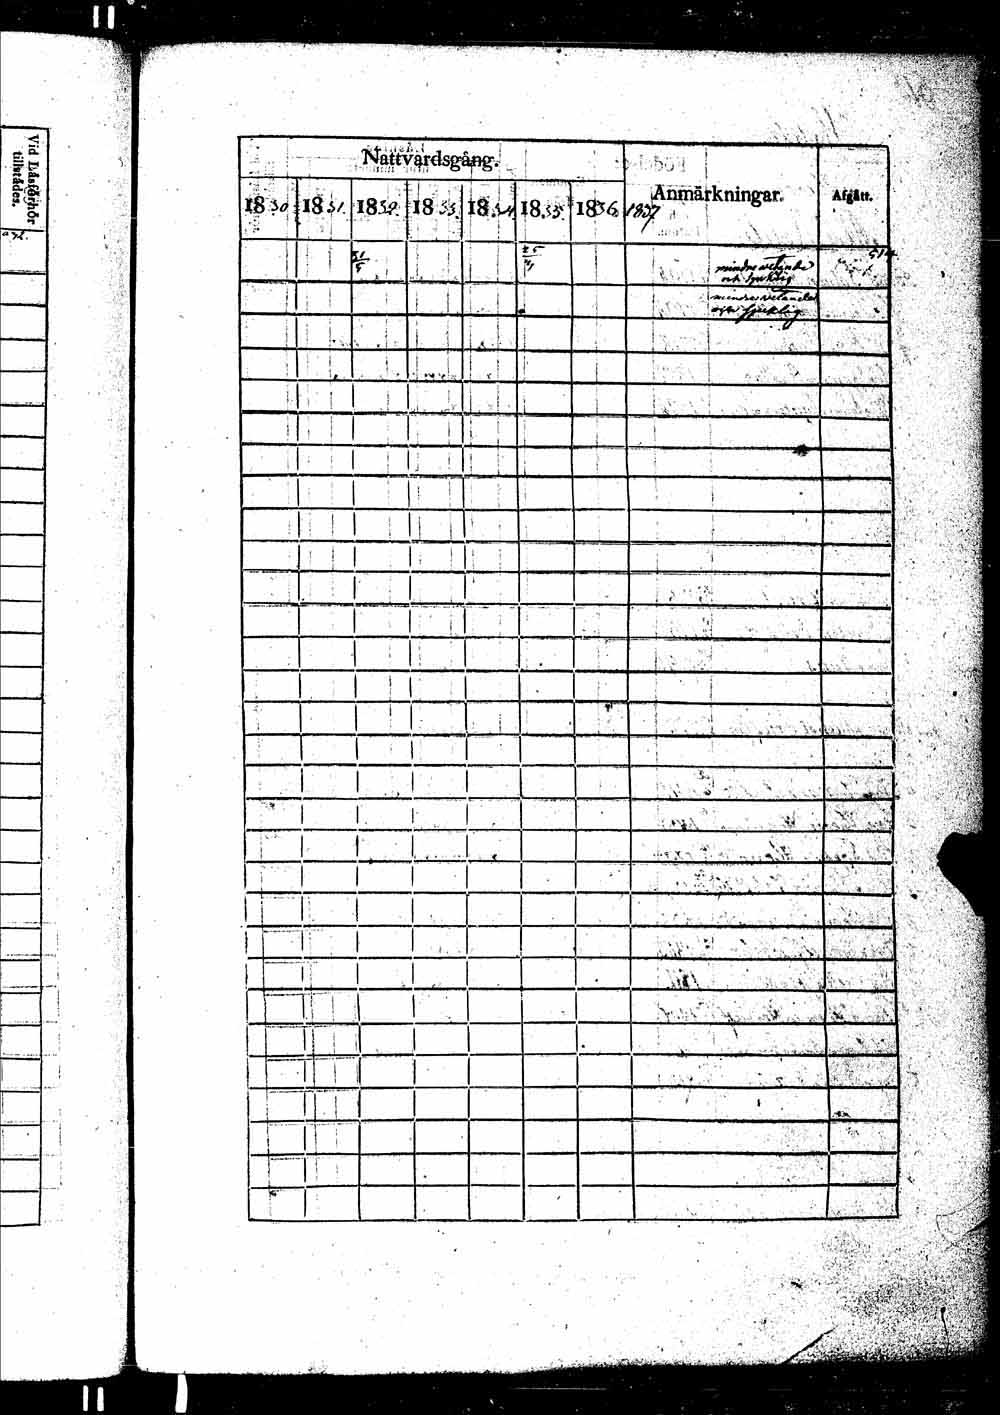 Vid Läsförhör
tillstädes.
Nattvardsgång.
Anmärkningar.
Afgått.
1830 1831. 1832. 1833. 1834. 1835. 1836. 1837
31/5
25/4
514
mindre vetande
och sjuklig
mindre vetande
och sjuklig